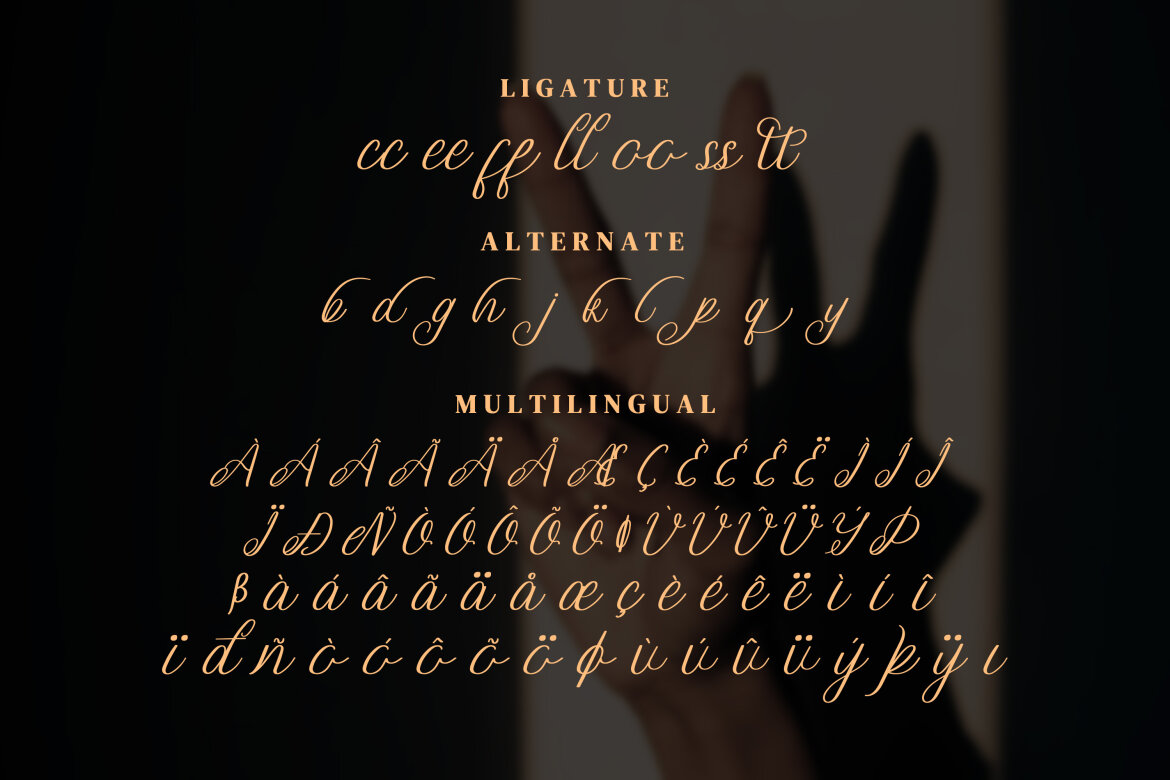 LIGATURE
cc ee ff ll oo ss tt
ALTERNATE
b d g h j k l p q y
MULTILINGUAL
À Á Â Ã Ä Å Æ Ç È É Ê Ë Ì Í Î
Ï Ð Ñ Ò Ó Ô Õ Ö Ø Ù Ú Û Ü Ý Þ
ß à á â ã ä å æ ç è é ê ë ì í î
ï đ ñ ò ó ô õ ö ø ù ú û ü ý þ ÿ ı